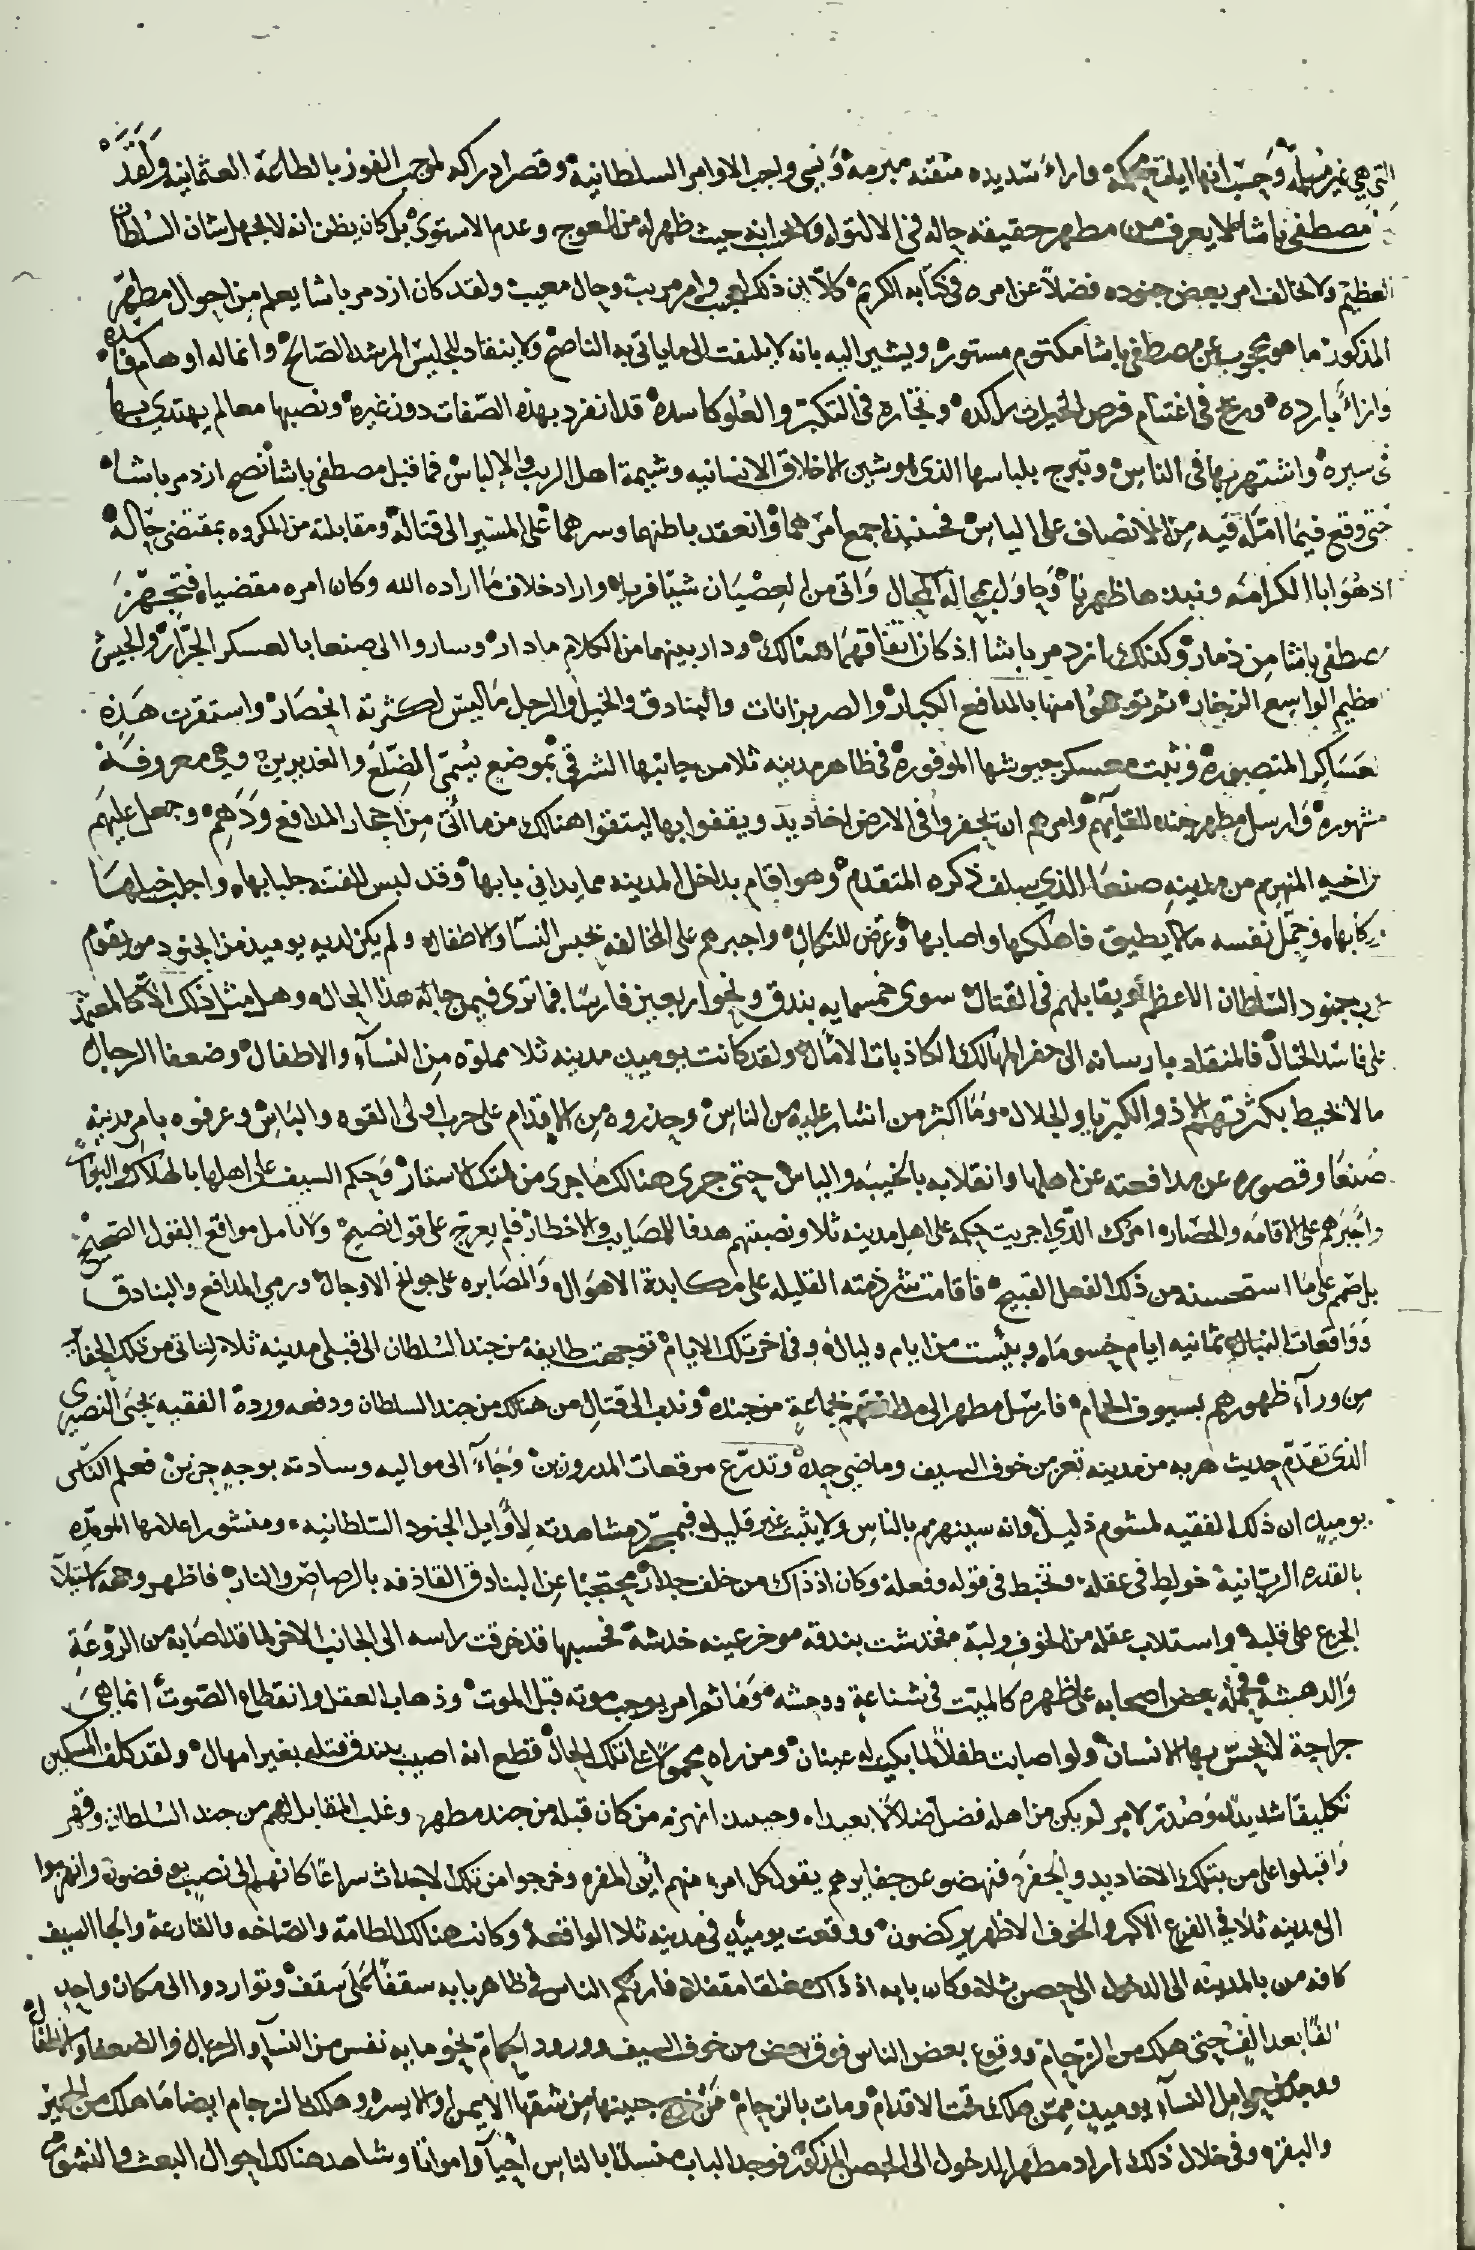 التي هي غير مهملة وحسب انها ايات محكمة واراء سديده متقنه مبرمة ونسي واجب الاوامر السلطانية وقصر ادراكه لموجب الفوز بالطاعة العثمانيه ولقد
مصطفى باشا لا يعرف من مطهر حقيقه حاله في الالتواء ولا يحسب انه حيث ظهر له من العوج وعدم الاستوى بل كان يظن انه لا يجهل شان السلطان
العظيم ولا يخالف امر بعض جنوده فضلا عن امره في كتابه الكريم كلا ان ذلك لعجب وامر مريب وحال معيب ولقد كان ازدمر باشا يعلم من احوال مطهر
المذكور ما هو محجوب عن مصطفى باشا مكتوم مستور ويشير اليه بانه لا يلتفت الى ما ياتي به الناصح ولا ينقاد للجليس المرشد الصالح وانما له اوهام فاسده
واراء بارده وريح في اغتنام فرص الخيرات راكده وتجاره في التكبر والعلو كاسده قد انفرد بهذه الصفات دون غيره ونصبها معالم يهتدي بها
في سيره واشتهر بها في الناس وتبرج بلباسها الذي هو شين الاخلاق الانسانيه وشيمة اهل الريب والالباس فما قبل مصطفى باشا نصح ازدمر باشا
حتى وقع فيما امله فيه من الانصاف على الياس فحينئذ اجمع امرهما وانعقد باطنهما وسرهما على المسير الى قتاله ومقابلته من المكروه بمقتضى حاله
اذ هو ابا الكرامه ونبذها ظهريا وحاول بمحاله المحال واتى من العصيان شيئا فريا واراد خلاف ما اراده الله وكان امره مقضيا فتجهز
مصطفى باشا من ذمار وكذلك ازدمر باشا اذ كان اتفاقهما هنالك ودار بينهما من الكلام ما دار وساروا الى صنعا بالعسكر الجرار والجيش
العظيم الواسع الزخار ثم توجهوا منها بالمدافع الكبار والضربزانات والبنادق والخيل والرجل ما ليس لكثرته انحصار واستقرت هذه
العساكر المنصوره وثبت معسكر جيوشها الموفوره في ظاهر مدينه ثلا من جانبها الشرقي بموضع يسمى الضلع والغديرين وهي معروفة
مشهوره وارسل مطهر جنده للقائهم وامرهم ان يحفروا في الارض اخاديد ويقفوا بها ليتقوا هنالك من ما اتى من احجار المدافع ودهم وجعل عليهم
من اخيه المنهزم من مدينه صنعا الذي سلف ذكره المتقدم وهو اقام بداخل المدينه مما يداني بابها وقد لبس للفتنه جلبابها واجلب خيلها
وركابها وحمل نفسه ما لا يطيق فاهلكها واصابها وعرض للنكال واجبرهم على المخالفه بحبس النسا والاطفال ولم يكن لديه يوميذ من الجنود من يقوم
بحرب جنود السلطان الاعظم او يقابلهم في القتال سوى خمسمايه بندق ونحو اربعين فارسا فما ترى فيمن حاله هذا الحال وهل مثل ذلك الا كالمعتمد
على فاسد الخيال فالمنقاد بارسانه الى حفر المهالك الكاذبات الامال ولقد كانت يوميذ مدينه ثلا مملوه من النساء والاطفال وضعفا الرجال
ما لا يحيط بكثرتهم الا ذو الكبريا والجلال وما اكثر من اشار عليه من الناس وحذروه من الاقدام على حرب اولي القوه والباس وعرفوه بامر مدينه
صنعا وقصوره عن مدافعته عن اهلها وانقلابه بالخيبه والياس حتى جرى هنالك ما جرى من هتك الاستار وحكم السيف على اهلها بالهلاك والبوار
واجبرهم على الاقامه والحصاره امرك الذي اجريت حكمه على اهل مدينه ثلا ونصبتهم هدفا للمصايب والاخطار فلم يعرج على قول نصيح ولا تامل مواقع القول الصحيح
بل صمم على ما استحسنه من ذلك الفعل القبيح فاقامت شرذمته القليله على مكابدة الاهوال والمصابره على جوالح الاوجال ورمي المدافع والبنادق
وواقعات النبال ثمانيه ايام حسوما وبئست من ايام وليال وفي اخر تلك الايام توجهت طايفه من جند السلطان الى قبلي مدينه ثلا لتاتي من تلك الحفاير
من وراء ظهورهم بسيوف الحمام فارسل مطهر الى مدافعتهم جماعة من جنده وندب الى قتال من هنالك من جند السلطان ودفعه ورده الفقيه يحيى النصيري
الذي تقدم حديث هربه من مدينه تعز من خوف السيف وماضي حده وتدرع مرقعات المدروزين وجاء الى مواليه وسادته بوجه حزين فعلم الناس
يوميذ ان ذلك الفقيه لمشوم ذليل وانه سينهزم بالناس ولا يثبت غير قليل فبمجرد مشاهدته لاوايل الجنود السلطانيه ومنشور اعلامها المويده
بالقدره الربانية خولط في عقله وتخبط في قوله وفعله وكان اذ ذاك من خلف جدار محتجبا عن البنادق القاذفه بالرصاص والنار فاظهر وهمه لاستيلاء
الجزع على قلبه واستلاب عقله من الخوف ولبه فخدشت بندقه موخر عينه خدشة فحسبها قد خرقت راسه الى الجانب الاخر لما قد اصابه من الروعة
والدهشه فحمله بعض اصحابه على ظهره كالميت في شناعة ووحشه وما ثم امر يوجب موته قبل الموت وذهاب العقل وانقطاع الصوت انما هي
جراحة لا يحس بها الانسان ولو اصابت طفلا لما بكيت له عينان ومن راه محمولا على تلك الحال قطع انه اصيب ببندق قتله بغير امهال ولقد كلف المسكين
تكليفا شديدا وصدر لامر لم يكن من اهله فضل ضلالا بعيدا وحينئذ انهزم من كان قبله من جند مطهر وغلب المقابل لهم من جند السلطان وقهر
واقبلوا على من بتلك الاخاديد والحفر فنهضوا عن حفايرهم يقول كل امرء منهم اين المفر وخرجوا من تلك الاجداث سراعا كانهم الى نصب يوفضون وانهزموا
الى مدينه ثلا في الفزع الاكبر والخوف الاظهر يركضون ووقعت يوميذ في مدينه ثلا الواقعة وكانت هنالك الطامة والصاخه والقارعة والجا السيف
كافه من بالمدينه الى الدخول الى حصن ثلا وكان بابه اذ ذاك مغلقا مقفلا فارتكم الناس في ظاهر بابه سقفا على سقف وتواردوا الى مكان واحد
الفا بعد الف حتى هلك من الزحام ووقوع بعض الناس فوق بعض من خوف السيف وورود الحمام نحو مايه نفس من النسا والرجال والضعفا والاطفال
ووجد في حوامل النساء يوميذ ممن هلك تحت الاقدام ومات بالزحام من خرج جنينها من شقها الايمن او الايسر وهلك الزحام ايضا ما هلك من الحمير
والبقر وفي خلال ذلك اراد مطهر الدخول الى الحصن المذكور فوجد الباب منسدا بالناس احيا وامواتا وشاهد هنالك احوال البعث والنشور